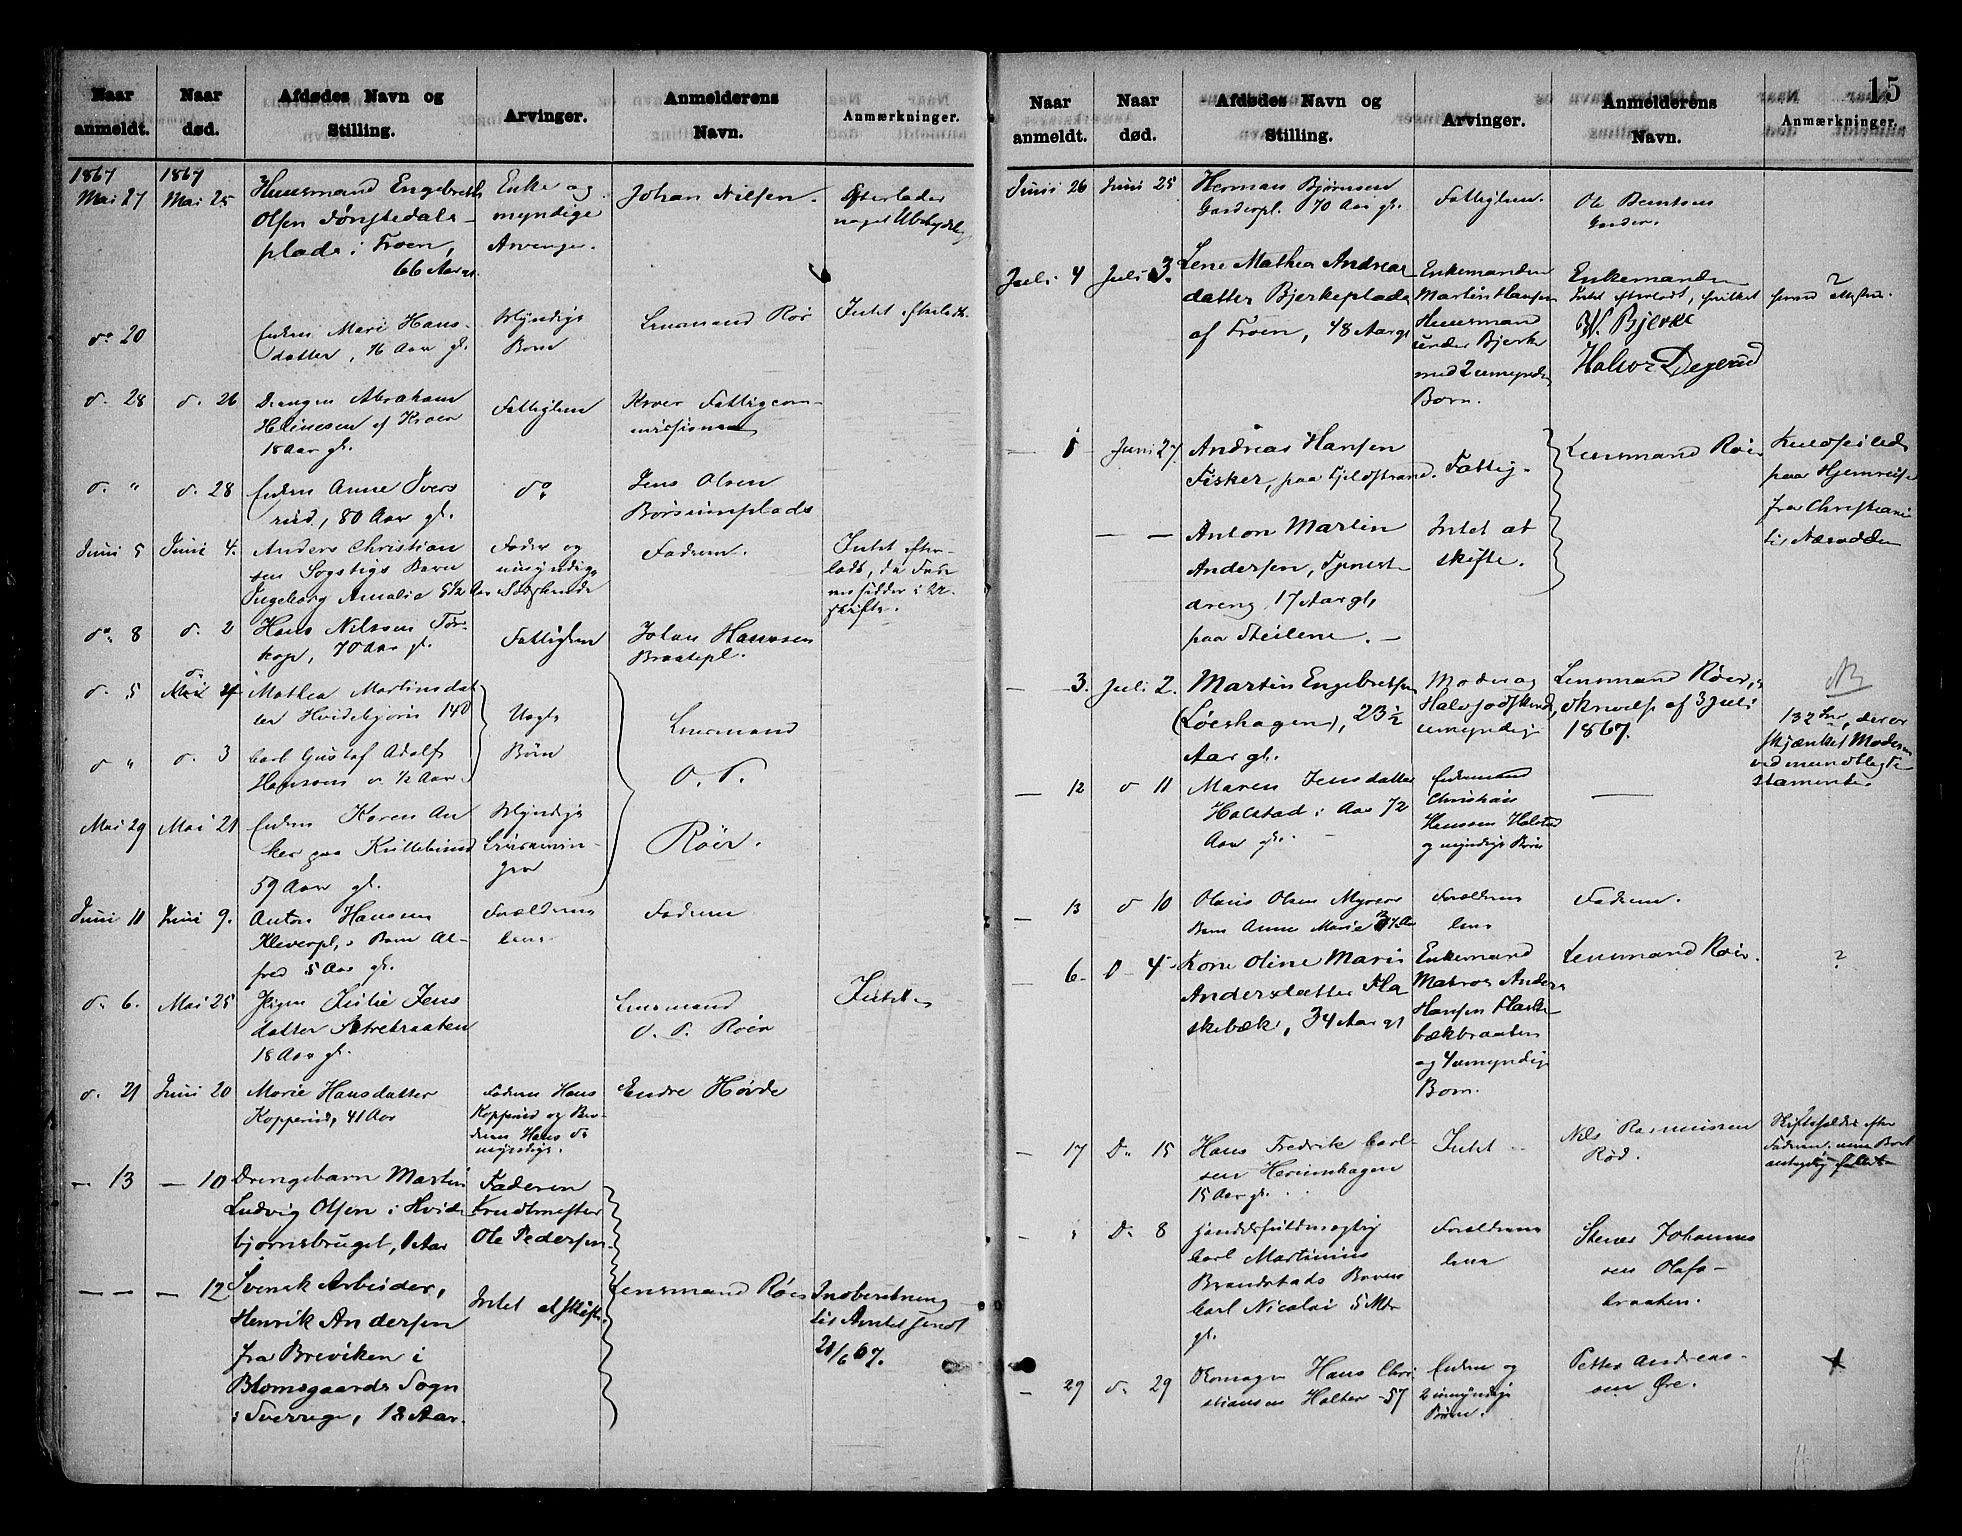 Naar anmeldt.
Naar død.
Afdødes Navn og Stilling.
Arvinger.
Anmelderens Navn.
Anmærkninger.
1867
1867
Mai 27
Mai 25
Huusmand Engebreth
Olsen
plads i Froen,
66 Aar gl.
Enke og
myndige
Arvinger.
Johan Nilsen.
Efterlader
noget Ubetydelig
do 20
Enken Mari Hans-
datter, 76 Aar gl.
Myndige
Børn
Lensmand Røer
Intet efterladt.
d. 28
d. 26
Drengen Abraham
af Kroer
18 Aar gl.
Fattiglem
Kroer Fattigcom-
missionen
d. "
d. 28
Enken Anne Ivers
rud, 80 Aar gl.
do
Jens Olsen
Børsumplads
Juni 5
Juni 4.
Anders Christian
sen Sogstigs Barn
Ingeborg Amalie 5½ Aar
Fader og
umyndige
Søskende
Faderen.
Intet efter-
ladt, da Fade
ren sidder i
skifte.
do 8
d. 2
Hans Nilsen Tør-
kop, 70 Aar gl.
Fattiglem
Johan Hanssen
Braatepl.
d. 5
d. 4
Mathea Martinsdat
ter Hvidebjørn
Uægte
Børn
Lensmand
O. P.
Røer.
d "
d. 3
Carl Gustaf Adolf
Hansen ½ Aar
Mai 29
Mai 21
Enken Karen An
ker paa Krittebund
59 Aar gl.
Myndige
Livsarvin-
ger
Juni 11
Juni 9.
Anton Hansen
Kleverpl, s Barn Al-
fred 5 Aar gl.
Forældrene
lever
Faderen
d. 6.
Mai 25
Pigen Julie Jens
datter Sætrebraaten
18 Aar gl.
Lensmand
O. P. Røer
Intet
d. 21
Juni 20
Marie Hansdatter
Kopperud, 41 Aar
Faderen Hans
Kopperud og Bro-
deren Hans do
myndige.
Endre Hovde
— 13
— 10
Drengebarn Martin
Ludvig Olsen i Hvide
bjørnsbruget, 1 Aar
Faderen
Krudtmester
Ole Pedersen.
— —
— 12
Svensk Arbeider,
Henrik Andersen
fra Breviken i
Blomsgaards Sogn
i Sverrige, 18 Aar.
Intet at skifte.
Lensmand Røer
Indberetning
til Amtet sendt
21/6 67.
15
Naar anmeldt.
Naar død.
Afdødes Navn og Stilling.
Arvinger.
Anmelderens Navn.
Anmærkninger.
Juni 26
Juni 25
Herman Bjørnsen
Garderpl. 70 Aar gl.
Fattiglem.
Ole Berntsen
Garder.
Juli 4
Juli 3.
Lene Mathea Andreas
datter Bjerkeplads
af Froen, 48 Aar gl
Enkemanden
Martin Hansen
Huusmand
under Bjerke
med 2 umyndige
Børn.
Enkemanden
Intet efterladt, hvilket
W. Bjerke
Halvor Degerud
?
—
Juni 27.
Andreas Hansen
Fisker, paa Fjeldstrand.
Fattig.
Lensmand Røer
Kuldseilede
paa Hjemreise
fra Christiania
til Næsodden
—
—
Anton Martin
Andersen, Tjeneste
dreng, 17 Aar gl,
paa Steilene. —
Intet at
skifte.
— 3.
Juli 2.
Martin Engebretsen
(Løeshagen), 23½
Aar gl.
Moder og
Halvsødskende,
umyndige
Lensmand Røer,
skrivelse af 3 Juli
1867.
NB
132 der er
skjænket Moderen
ved mundtligt Te
stamente.
— 12
d 11
Maren Jensdatter
Holstad i Aas 72
Aar gl.
Enkemand
Christian
Hanssen Holstad
og myndige Børn
—
— 13
d 10
Olaus Olsen Myrers
Barn Anne Marie
Forældrene
lever
Faderen.
6.
D— 4
Kone Oline Marie
Andersdatter Fla
skebæk, 34 Aar gl
Enkemand
Matros Anders
Hansen Flaske-
bækbraaten
og 4 umyndige
Børn.
Lensmand Røer.
?
— 17
D. 15
Hans Fredrik Carl
sen Heiumhagen
15 Aar gl.
Intet
Nils Rasmussen
Rød.
—
D. 8
Handelsfuldmægtig
Carl Martinius
Brandstads Barn
Carl Nicolai 5 Mdr
gl.
Forældrene
lever
Johannes
sen Olafs-
braaten.
— 29
d. 29
Hans Chri
stiansen Holter 57
Enken og
2 umyndige
Børn.
Petter Andreas-
sen Øre.